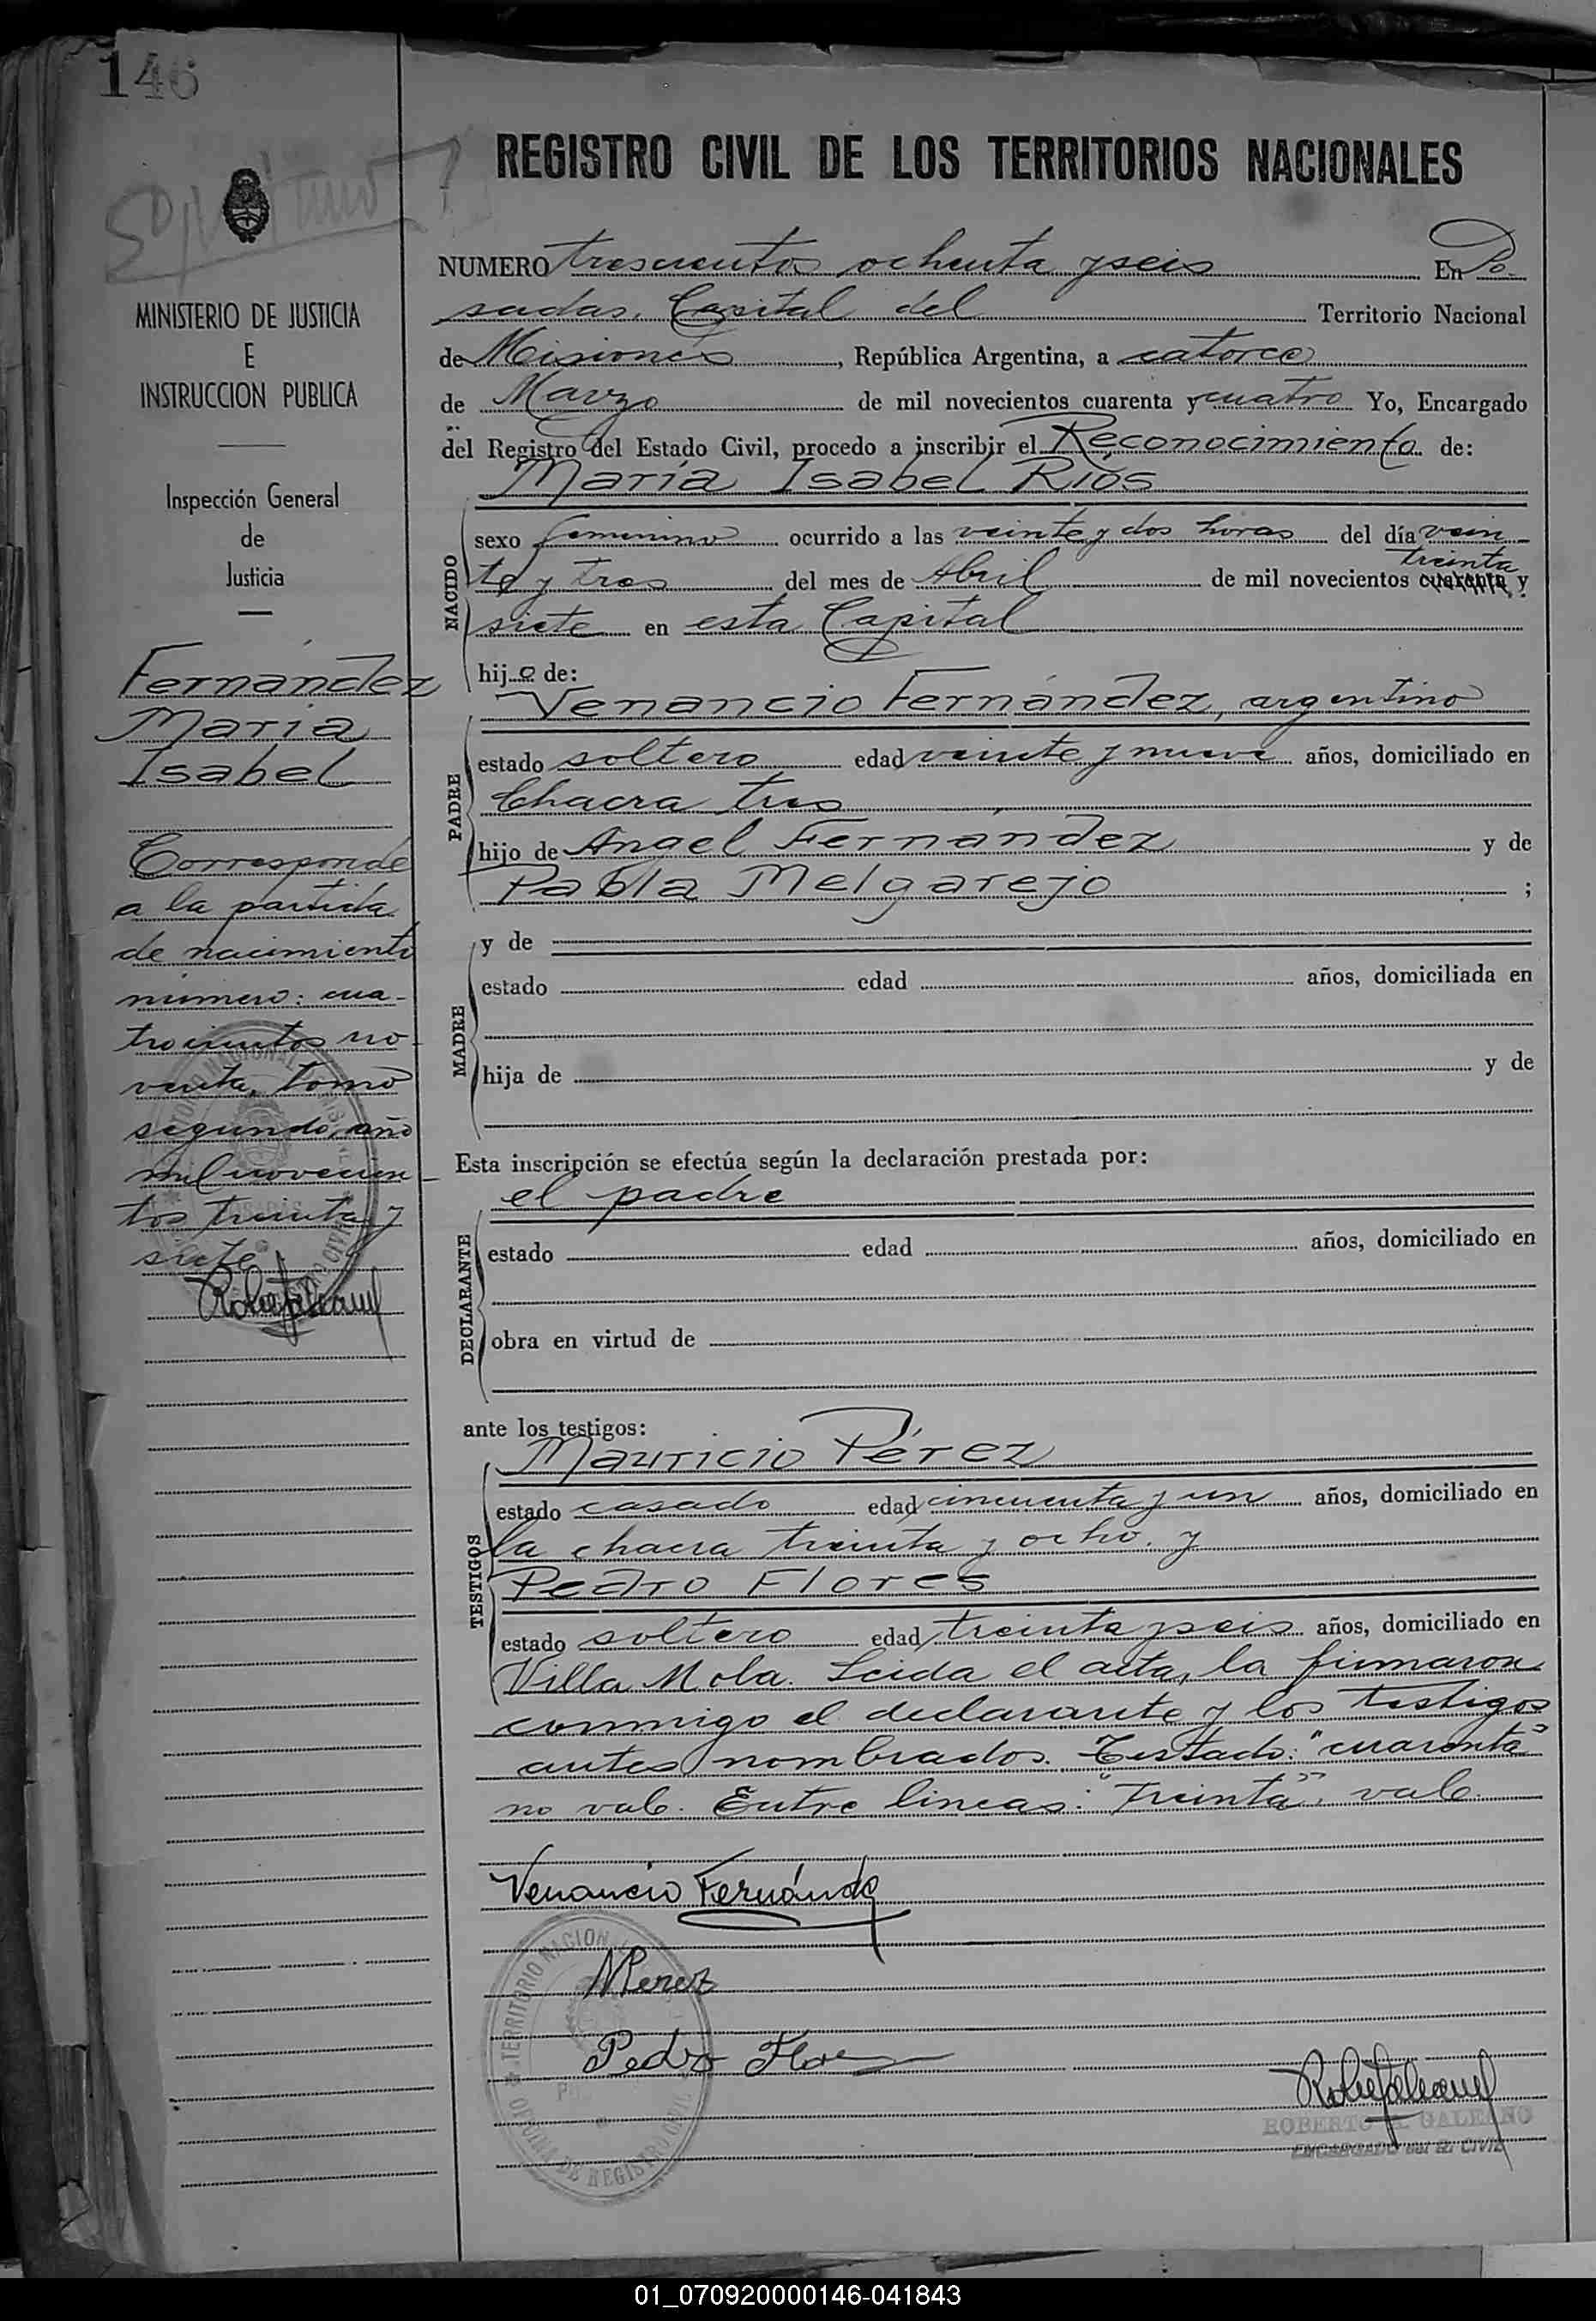 146
REGISTRO CIVIL DE LOS TERRITORIOS NACIONALES
MINISTERIO DE JUSTICIA
E
INSTRUCCION PUBLICA
Inspección General
de
Justicia
Fernández
María
Isabel
Corresponde
a la partida
de nacimiento
número: cua-
trocientos no-
venta, tomo
segundo, año
mil novecien-
tos treinta y
siete
NUMERO trescientos ochenta y seis En Po-
sadas, Capital del Territorio Nacional
de Misiones, República Argentina, a catorce
de Marzo de mil novecientos cuarenta y cuatro Yo, Encargado
del Registro del Estado Civil, procedo a inscribir el Reconocimiento de:
María Isabel Ríos
NACIDO
sexo femenino ocurrido a las veinte y dos horas del día vein-
treinta
te y tres del mes de Abril de mil novecientos cuarenta y
siete en esta Capital
hija de:
PADRE
Venancio Fernández, argentino
estado soltero edad veinte y nueve años, domiciliado en
Chacra tres
hijo de Angel Fernández y de
Pabla Melgarejo ;
MADRE
y de
estado edad años, domiciliada en
hija de y de
Esta inscripción se efectúa según la declaración prestada por:
el padre
DECLARANTE
estado edad años, domiciliado en
obra en virtud de
ante los testigos:
TESTIGOS
Mauricio Pérez
estado casado edad cincuenta y un años, domiciliado en
la chacra treinta y ocho. y
Pedro Flores
estado soltero edad treinta y seis años, domiciliado en
Villa Mola. Leida el acta, la firmaron
conmigo el declarante y los testigos
antes nombrados. Testado: "cuarenta"
no vale. Entre lineas: "treinta", vale.
Venancio Fernández
MPerez
Pedro Flores
TERRITORIO NACIONAL
OFICINA DE REGISTRO CIVIL
ROBERTO GALEANO
ENCARGADO del R. CIVIL
01_070920000146-041843